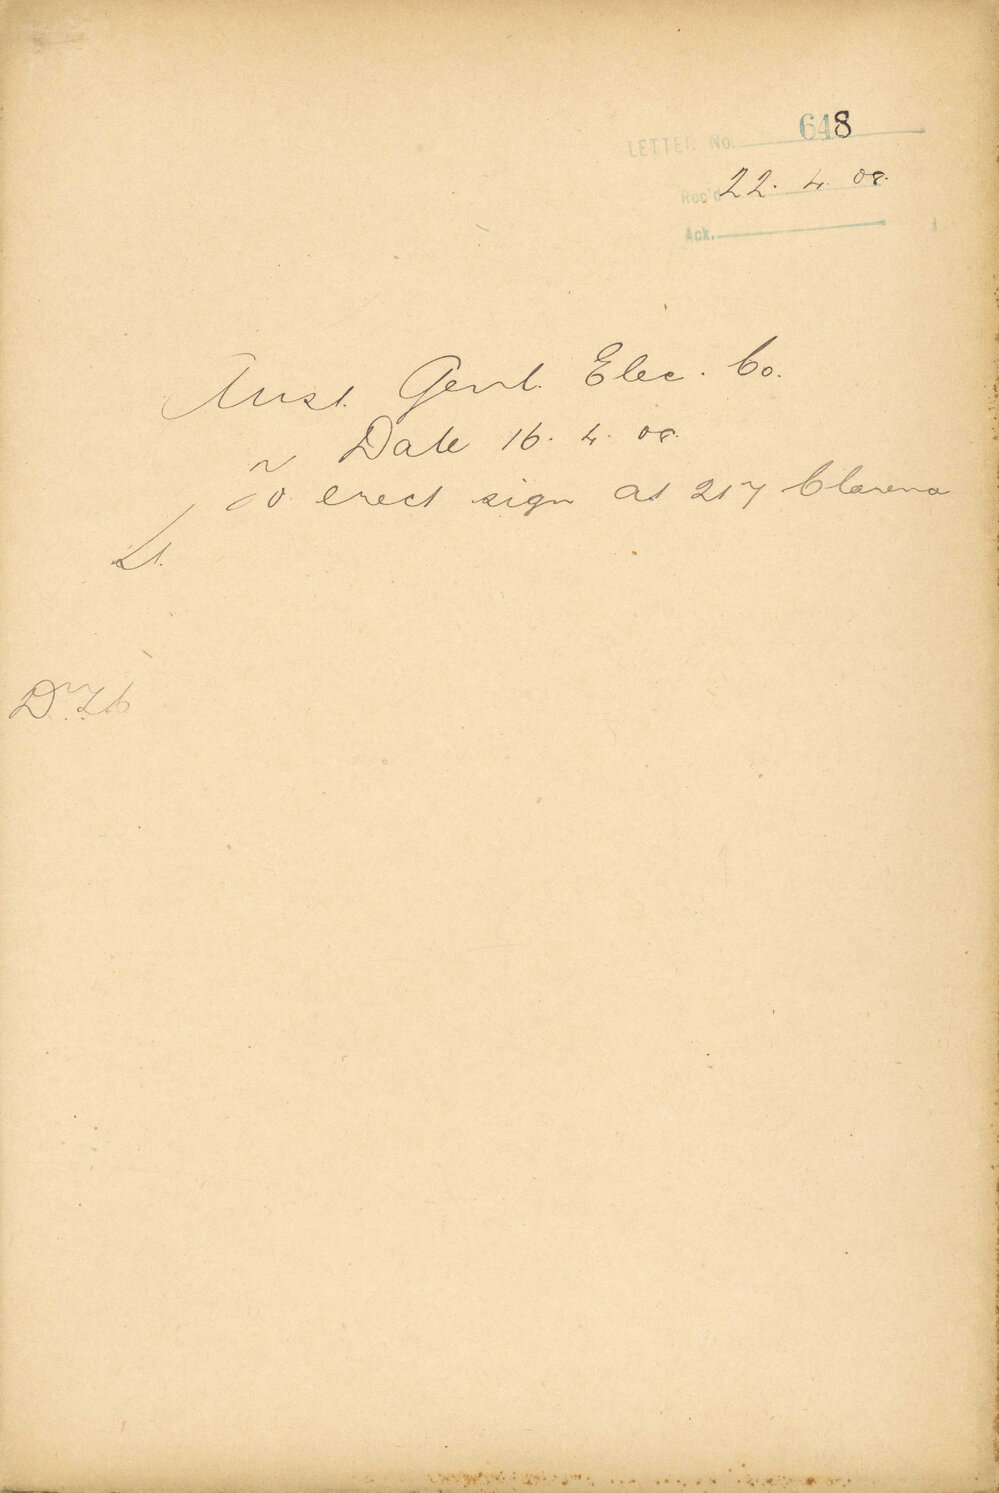 LETTER No. 648
Rec'd 22. 4. 08.
Ack.
Aust. Genl. Elec. Co.
Date 16. 4. 08.
To erect sign at 217 Clarence
St.